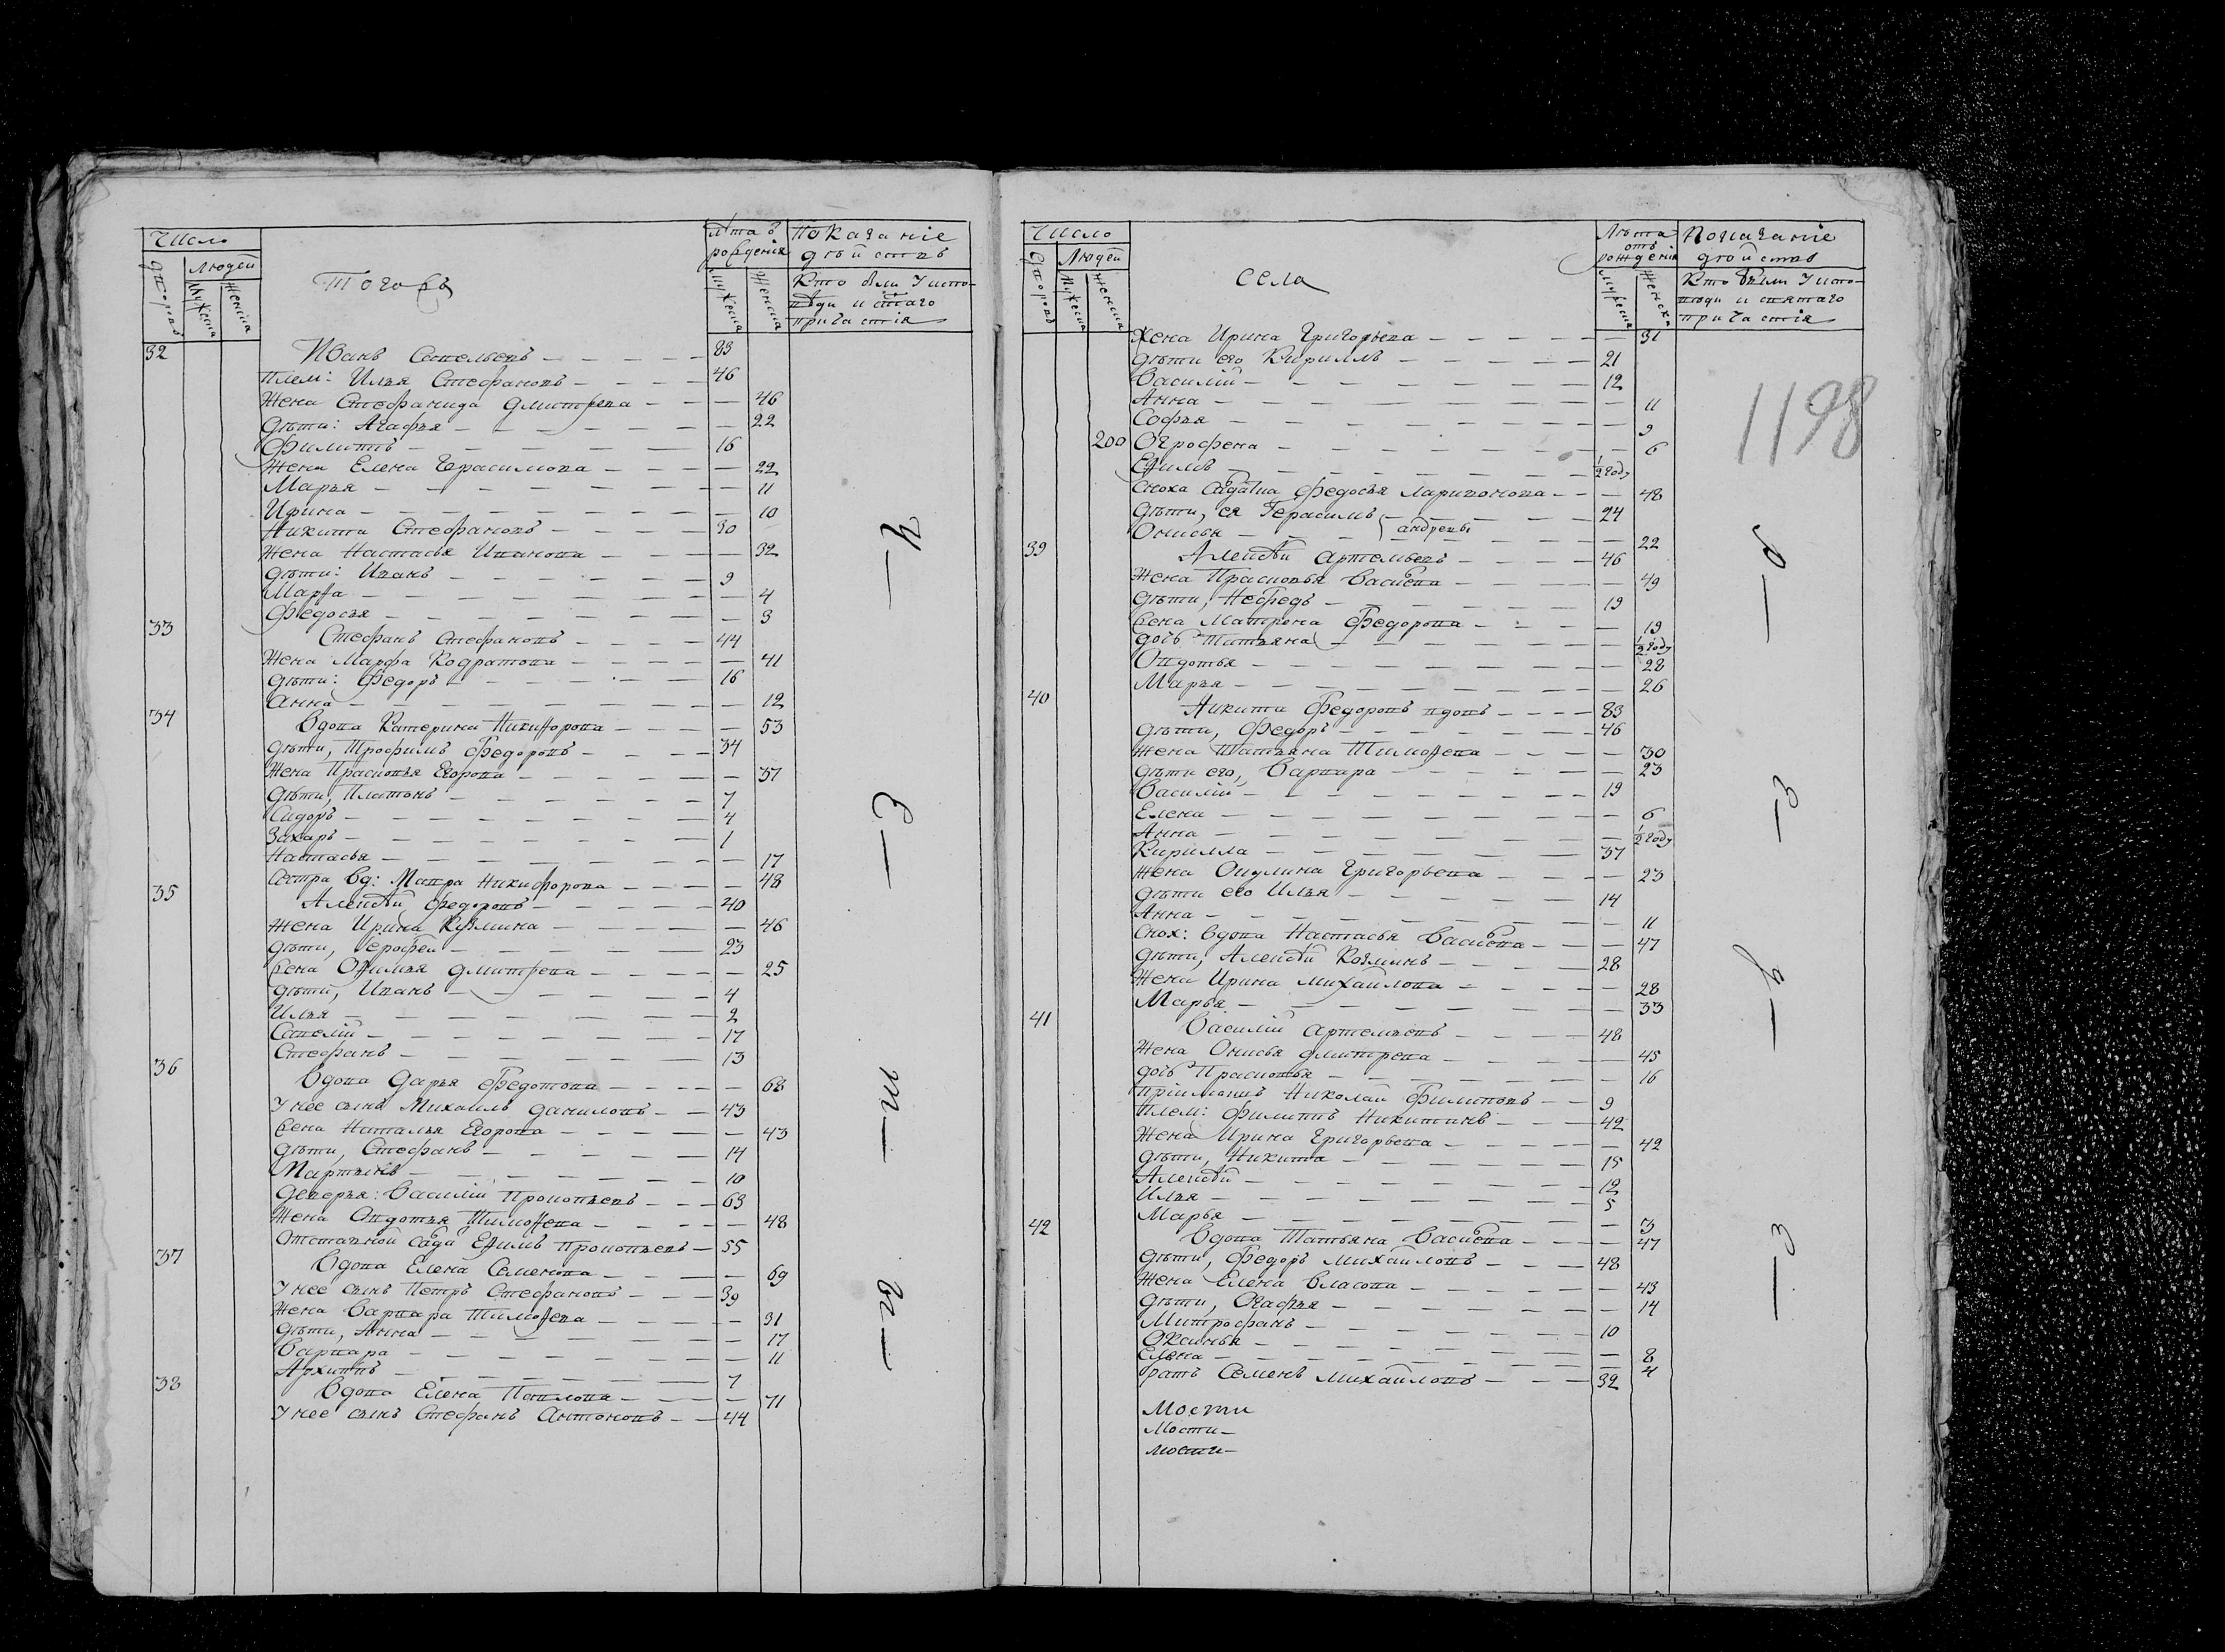 Число
Людей
Дворовъ
Мужеска
Женска
Тогожъ
лѣта ѿ рожденія
Мужеска
Женска
Показаніе
дѣйствъ
Кто были У испо-
вѣди и стаго
причастія
32 Иванъ Савельевъ 83
Плем: Илья Стефановъ 46
Жена Стефанида Дмитрева 46
Дѣти: Агафья 22
Филиппъ 16
Жена Елена Герасимова 22
Марья 11
Ирина 10
Никита Стефановъ 30
Жена Настасья Иванова 32
Дѣти: Иванъ 9
Марѳа 4
Федосья 3
33 Стефанъ Стефановъ 44
Жена Марфа Кодратова 41
Дѣти: Федоръ 16
Анна 12
34 Вдова Катерина Никиѳорова 53
Дѣти, Трофимъ Федоровъ 34
Жена Прасковья Егорова 37
Дѣти, Платонъ 7
Сидоръ 4
Захаръ 1
Настасья 17
Сестра вд: Мавра Никифорова 48
35 Алексѣй Федоровъ 40
Жена Ирина Кузмина 46
Дѣти, Ерофеи 23
Жена Оѳимья Дмитрева 25
Дѣти, Иванъ 4
Илья 2
Савелій 17
Стефанъ 13
36 Вдова Дарья Федотова 68
У нее сынъ Михаилъ Даниловъ 43
Жена Наталья Егорова 43
Дѣти, Стефанъ 14
Мартынъ 10
Деверья: Василій Прокопьевъ 63
Жена Овдотья Тимоѳева 48
Отставной садй Еѳимъ Прокопьевъ 55
37 Вдова Елена Семенова 69
У нее сынъ Петръ Стефановъ 39
Жена Варвара Тимоѳева 31
Дѣти, Анна 17
Варвара 11
Архиппъ 7
38 Вдова Елена Павлова 71
У нее сынъ Стефанъ Антоновъ 44
Число
Людей
Дворовъ
Мужеска
Женска
села
Лѣта
отъ
рожденія
Мужеска
Женска
Показаніе
дѣйствъ
Кто были У испо-
вѣди и святаго
причастія
1198
Жена Ирина Григорьева 31
Дѣти его Кириллъ 21
Василій 12
Анна 11
Софья 9
200 Огрофена 6
Еѳимъ ½ году
Сноха садатка Федосья Ларивонова 48
Дѣти, ея Герасимъ 24
андревы
Онисья 22
39 Алексѣй Артемьевъ 46
Жена Прасковья Васиева 49
Дѣти, Нефедъ 19
Жена Матрена Федорова 19
дочь Татьяна ½ году
Овдотья 28
Марья 26
40 Никита Федоровъ вдовъ 83
Дѣти, Федоръ 46
Жена Татьяна Тимоѳева 30
Дѣти его, Варвара 23
Василій 19
Елена 6
Анна ½ году
Кирилла 37
Жена Окулина Григорьева 23
Дѣти его Илья 14
Анна 11
Снох: вдова Настасья Васиева 47
Дѣти, Алексѣй Козминъ 28
Жена Ирина Михайлова 28
Марья 33
41 Василій Артемьевъ 48
Жена Онисья Дмитрева 45
дочь Прасковья 16
Пріимышъ Николай Филиповъ 9
Плем: Филиппъ Никитинъ 42
Жена Ирина Григорьева 42
Дѣти, Никита 15
Алексѣй 12
Илья 5
Марья 3
42 Вдова Татьяна Васиева 47
Дѣти, Федоръ Михайловъ 48
Жена Елена Власова 43
Дѣти, Огафья 14
Митрофанъ 10
Оксинья 8
Елена 4
братъ Семенъ Михайловъ 32
Мости
Мости
мости